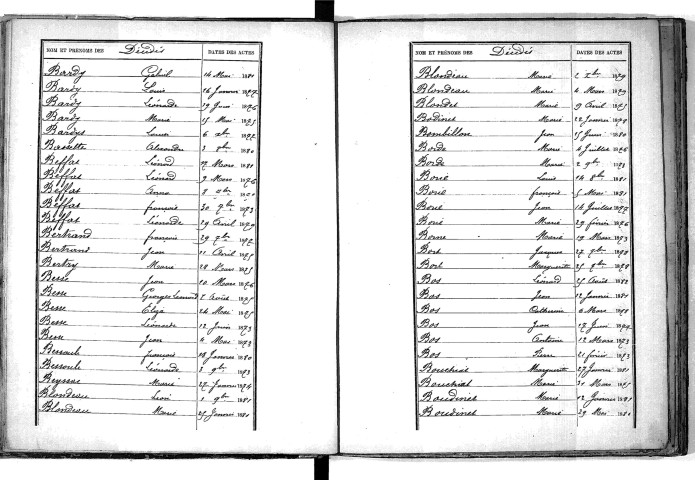 NOM ET PRÉNOMS DES Décédés DATES DES ACTES
Bardy Gabriel 14 Mai 1881
Bardy Louis 26 Janvier 1877
Bardy Léonarde 19 Juin 1876
Bardy Marie 15 Mai 1875
Bardys 6 Xbre
Alexandre 1880
Beffat Léonard Mars 1881
Beffat Léonard 9 Mars 1876
Beffat Anna 8
Beffat françois 30 9bre 1873
Beffat Léonarde 29 Avril 1879
Bertrand françois 29 9bre 1872
Bertrand Jean 11 Avril
Bertry Marie 28 Mars 1875
Besse Jean 10 Mars 1876
Besse Georges Léonard Août 1875
Besse 24 Mai 1875
Besse Léonarde 12 Juin 1873
Besse Jean 4 Mai 1873
Bessoule françois 18 Janvier 1880
Bessoule Léonarde 3 9bre 1873
Beysse Marie 27 Janvier 1874
Blondeau 1 9bre 1881
Blondeau Marie 25 Janvier 1881
NOM ET PRÉNOMS DES Décédés DATES DES ACTES
Blondeau Marie 2 Xbre 1879
Blondeau Marie 4 Mars 1879
Blondet Marie 9 Avril 1875
Marie 22 Janvier 1878
Bombillon Jean 15 Juin 1880
Borde Marie 4 Juillet 1876
Borde Marie 2 9bre 1873
Borie Louis 14 9bre 1881
Borie françois 5 Mai
Borie Jean 14 Juillet 1877
Borie Marie 29 février 1876
Borne Marie 19 Mars 1873
Bort Jacques 27 9bre 1878
Bort Marguerite 25 9bre 1878
Bos Léonard 25 Août 1882
Bos Jean 12 Janvier 1881
Bos Catherine 6 Mars 1878
Bos Jean 17 Juin
Bos Antoine 12 Mars 1873
Bos Pierre 21 février 1873
Bouchiat Marguerite 27 Janvier 1881
Bouchiat Marie 31 Mars 1875
Boudinet Marie 12 Janvier 1881
Boudinet Marie 29 Mai 1881